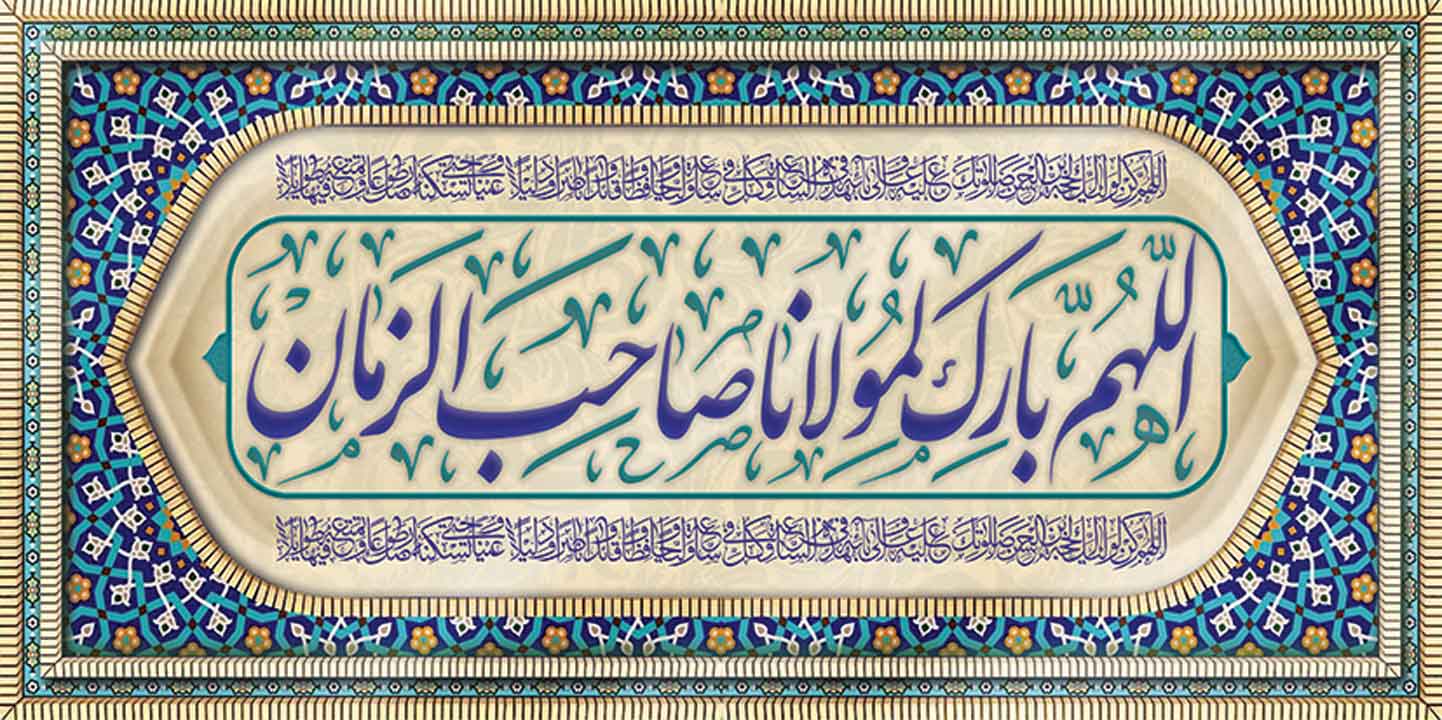 اللهم كن لوليك الحجة بن الحسن صلواتك عليه وعلى آبائه في هذه الساعة وفي كل ساعة وليا وحافظا وقائدا وناصرا ودليلا وعينا حتى تسكنه أرضك طوعا وتمتعه فيها طويلا
اللهم بارك لمولانا صاحب الزمان
اللهم كن لوليك الحجة بن الحسن صلواتك عليه وعلى آبائه في هذه الساعة وفي كل ساعة وليا وحافظا وقائدا وناصرا ودليلا وعينا حتى تسكنه أرضك طوعا وتمتعه فيها طويلا